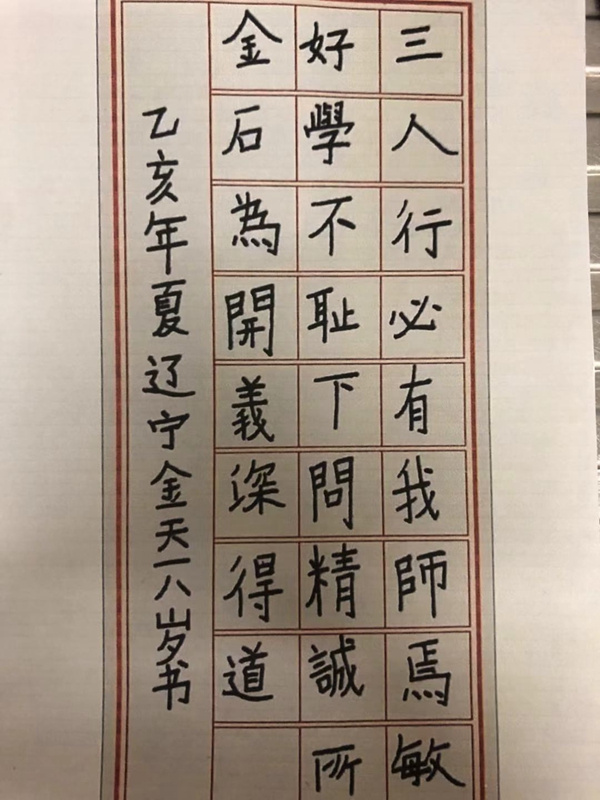 三人行必有我師焉敏
好學不恥下問精誠所
金石為開義深得道
乙亥年夏辽宁金天一八岁书